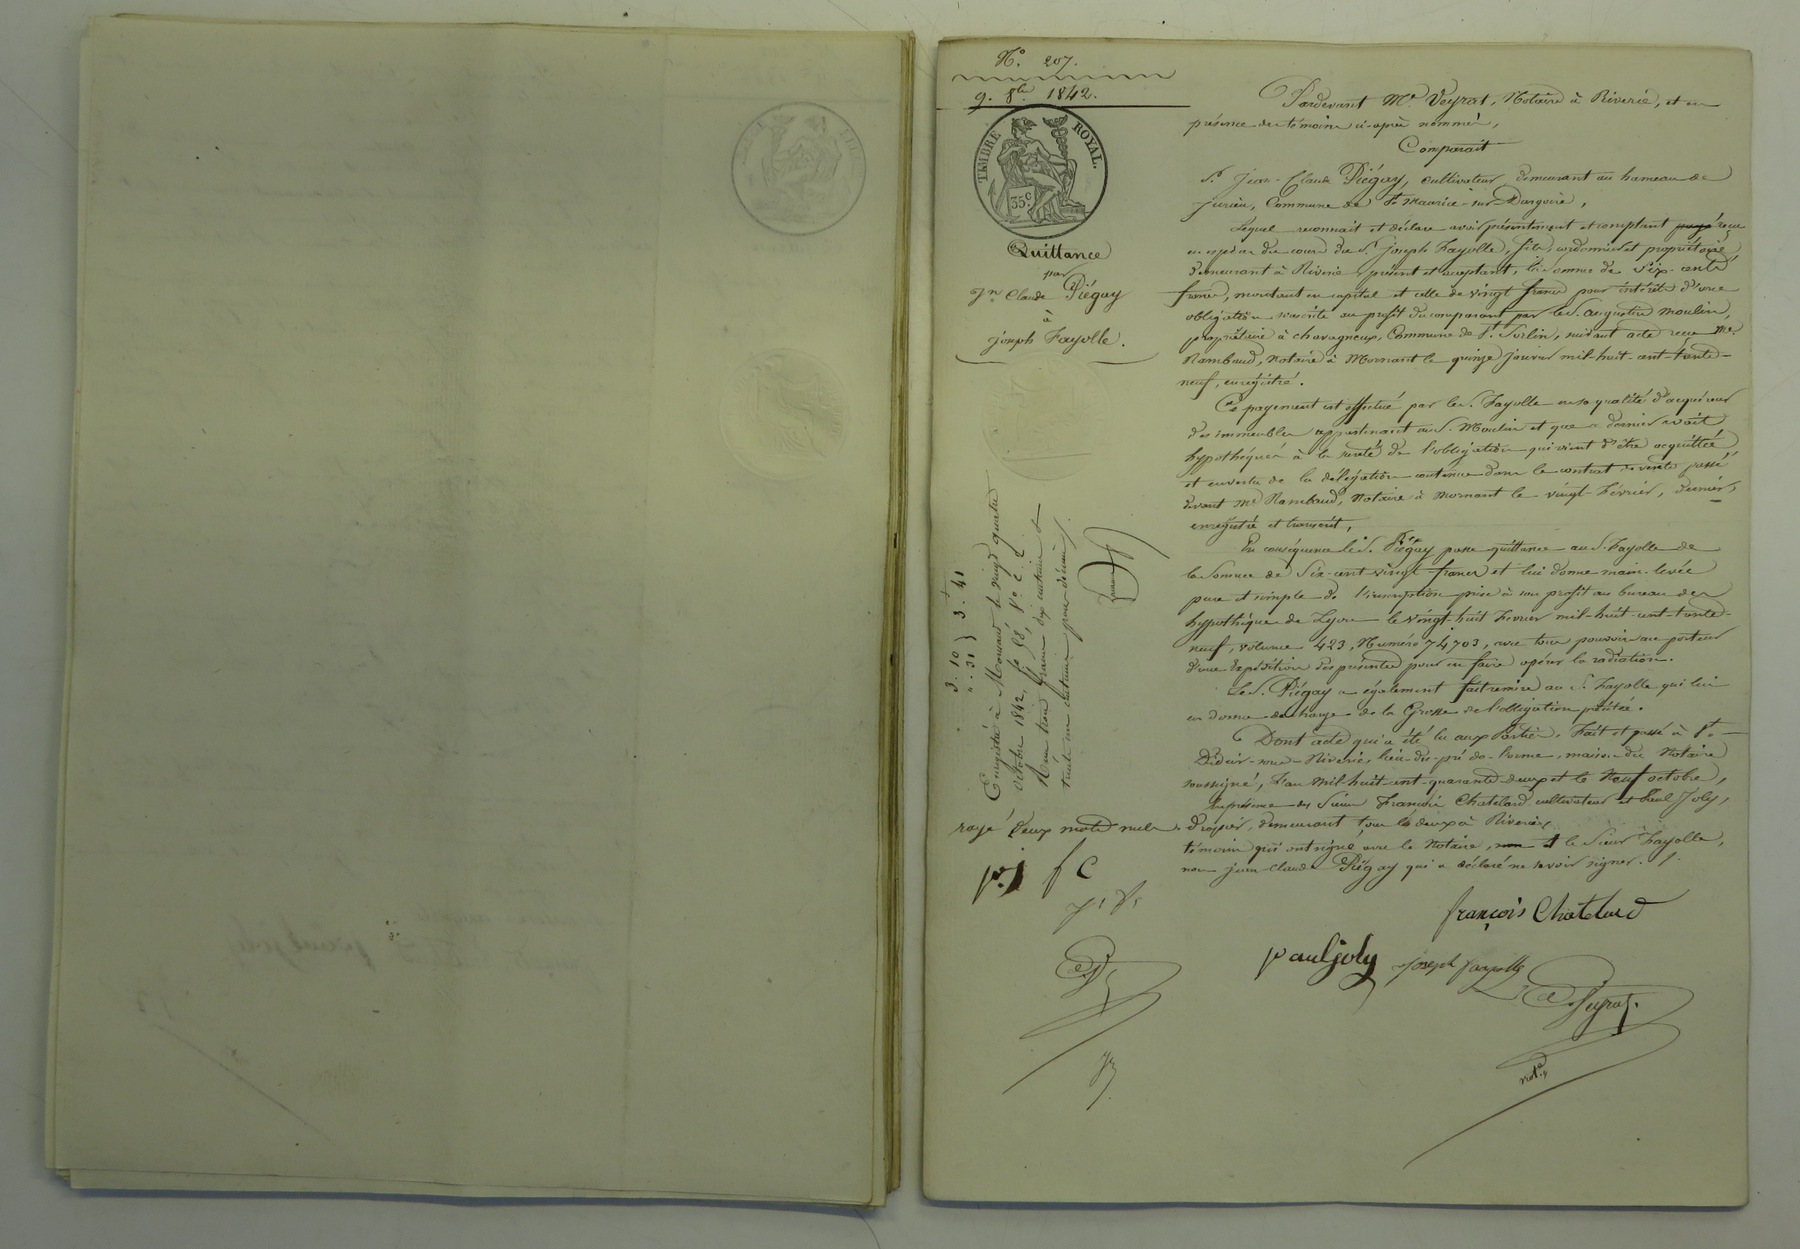 N° 207.
9. 8bre 1842.
TIMBRE ROYAL.
35 c
Quittance
par
Jn Claude Piégay
à
joseph Fayolle.
Pardevant Me Veyrat, Notaire à Riverie, et en
présence des témoins ci-après nommés,
Comparait
Sr. Jean-Claude Piégay, cultivateur, demeurant au hameau de
jurieu, Commune de St Maurice-sur-Dargoire,
Lequel reconnait et déclare avoir présentement et comptant payé reçu
en espèces du cours du Sr. joseph Fayolle, fils, cordonnier et propriétaire
demeurant à Riverie, présent et acceptant, la somme de six-cents
francs, montant en capital et celle de vingt francs pour intérêts d'une
obligation souscrite au profit du comparant par le S. augustin Moulin,
propriétaire à chavagneux, Commune de St. Sorlin, suivant acte reçu Me
Rambaud, Notaire à Mornant le quinze janvier mil-huit-cent-trente-
neuf, enregistré.
Ce payement est effectué par le S. Fayolle en sa qualité d'acquéreur
des immeubles appartenant au S. Moulin et que ce dernier avait
hypothéqués à la sureté de l'obligation qui vient d'être acquittée
et en vertu de la délégation contenue dans le contrat de vente passé
devant Me Rambaud, Notaire à Mornant le vingt-Février, dernier,
enregistré et transcrit,
En conséquence le S. Piégay passe quittance au S. Fayolle de
la Somme de Six-cent-vingt-francs et lui donne main-levée
pure et simple de l'inscription prise à son profit au bureau des
hypothèques de Lyon le vingt-huit Février mil-huit-cent-trente-
neuf, volume 423, Numéro 74703, avec tous pouvoirs au porteur
d'une Expédition des présentes pour en faire opérer la radiation.
Le S. Piégay a également fait remise au S. Fayolle qui lui
en donne décharge de la Grosse de l'obligation précitée.
Dont acte qui a été lu aux Parties. Fait et passé à St.-
Didier-sous-Riverie, lieu-du-pré-de-, maison du Notaire
soussigné, L'an mil-huit-cent-quarante-deux et le Neuf octobre,
En présence des Sieurs François Chatelard cultivateur et Paul Joly,
Drapier, demeurant tous les deux à Riverie,
témoins qui ont signé avec le Notaire, non et le Sieur Fayolle,
non jean Claude Piégay qui a déclaré ne savoir signer.
3. 10
". 31 } 3. 41
Enregistré à Mornant le vingt quatre
octobre 1842, fo 98, Vo c. 2
Reçu trois francs dix centimes et
trente un centimes pour décime.
rayé deux mots nuls
p. j f c
françois Chatelard
paul joly joseph fayolle
Veyrat.
not.